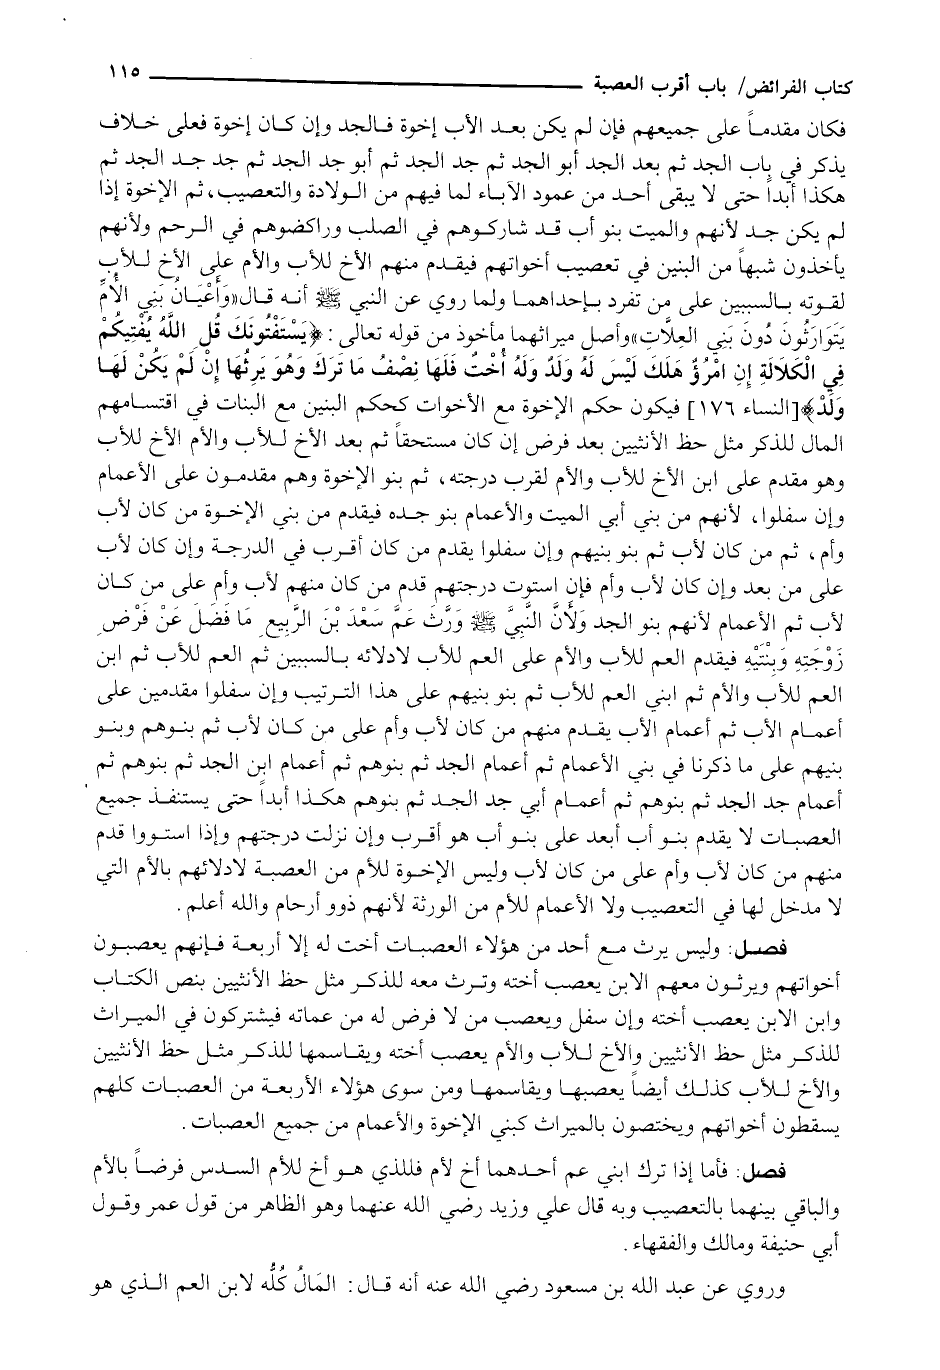 كتاب الفرائض/ باب أقرب العصبة ١١٥
فكان مقدماً على جميعهم فإن لم يكن بعد الأب إخوة فالجد وإن كان إخوة فعلى خلاف
يذكر في باب الجد ثم بعد الجد أبو الجد ثم جد الجد ثم أبو جد الجد ثم جد جد الجد ثم
هكذا أبداً حتى لا يبقى أحد من عمود الآباء لما فيهم من الولادة والتعصيب، ثم الإخوة إذا
لم يكن جد لأنهم والميت بنو أب قد شاركوهم في الصلب وراكضوهم في الرحم ولأنهم
يأخذون شبهاً من البنين في تعصيب أخواتهم فيقدم منهم الأخ للأب والأم على الأخ للأب
لقوته بالسببين على من تفرد بإحداهما ولما روي عن النبي ﷺ أنه قال «وَأَعْيَانُ بَنِي الأُمِّ
يَتَوَارَثُونَ دُونَ بَنِي العِلَّاتِ» وأصل ميراثهما مأخوذ من قوله تعالى: ﴿يَسْتَفْتُونَكَ قُلِ اللَّهُ يُفْتِيكُمْ
فِي الْكَلَالَةِ إِنِ امْرُؤٌ هَلَكَ لَيْسَ لَهُ وَلَدٌ وَلَهُ أُخْتٌ فَلَهَا نِصْفُ مَا تَرَكَ وَهُوَ يَرِثُهَا إِنْ لَمْ يَكُنْ لَهَا
وَلَدٌ﴾ [النساء ١٧٦] فيكون حكم الإخوة مع الأخوات كحكم البنين مع البنات في اقتسامهم
المال للذكر مثل حظ الأنثيين بعد فرض إن كان مستحقاً ثم بعد الأخ للأب والأم الأخ للأب
وهو مقدم على ابن الأخ للأب والأم لقرب درجته، ثم بنو الإخوة وهم مقدمون على الأعمام
وإن سفلوا، لأنهم من بني أبي الميت والأعمام بنو جده فيقدم من بني الإخوة من كان لأب
وأم، ثم من كان لأب ثم بنو بنيهم وإن سفلوا يقدم من كان أقرب في الدرجة وإن كان لأب
على من بعد وإن كان لأب وأم فإن استوت درجتهم قدم من كان منهم لأب وأم على من كان
لأب ثم الأعمام لأنهم بنو الجد وَلَأَنَّ النَّبِيَّ ﷺ وَرَّثَ عَمَّ سَعْدَ بْنَ الرَّبِيعِ مَا فَضَلَ عَنْ فَرْضِ
زَوْجَتِهِ وَبِنْتَيْهِ فيقدم العم للأب والأم على العم للأب لادلائه بالسببين ثم العم للأب ثم ابن
العم للأب والأم ثم ابني العم للأب ثم بنو بنيهم على هذا الترتيب وإن سفلوا مقدمين على
أعمام الأب ثم أعمام الأب يقدم منهم من كان لأب وأم على من كان لأب ثم بنوهم وبنو
بنيهم على ما ذكرنا في بني الأعمام ثم أعمام الجد ثم بنوهم ثم أعمام ابن الجد ثم بنوهم ثم
أعمام جد الجد ثم بنوهم ثم أعمام أبي جد الجد ثم بنوهم هكذا أبداً حتى يستنفذ جميع
العصبات لا يقدم بنو أب أبعد على بنو أب هو أقرب وإن نزلت درجتهم وإذا استووا قدم
منهم من كان لأب وأم على من كان لأب وليس الإخوة للأم من العصبة لادلائهم بالأم التي
لا مدخل لها في التعصيب ولا الأعمام للأم من الورثة لأنهم ذوو أرحام والله أعلم.
فصل: وليس يرث مع أحد من هؤلاء العصبات أخت له إلا أربعة فإنهم يعصبون
أخواتهم ويرثون معهم الابن يعصب أخته وترث معه للذكر مثل حظ الأنثيين بنص الكتاب
وابن الابن يعصب أخته وإن سفل ويعصب من لا فرض له من عماته فيشتركون في الميراث
للذكر مثل حظ الأنثيين والأخ للأب والأم يعصب أخته ويقاسمها للذكر مثل حظ الأنثيين
والأخ للأب كذلك أيضاً يعصبها ويقاسمها ومن سوى هؤلاء الأربعة من العصبات كلهم
يسقطون أخواتهم ويختصون بالميراث كبني الإخوة والأعمام من جميع العصبات.
فصل: فأما إذا ترك ابني عم أحدهما أخ لأم فللذي هو أخ للأم السدس فرضاً بالأم
والباقي بينهما بالتعصيب وبه قال علي وزيد رضي الله عنهما وهو الظاهر من قول عمر وقول
أبي حنيفة ومالك والفقهاء.
وروي عن عبد الله بن مسعود رضي الله عنه أنه قال: المَالُ كُلُّهُ لابن العم الذي هو